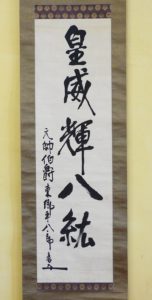 皇威輝八紘
元帥伯爵東郷平八郎書